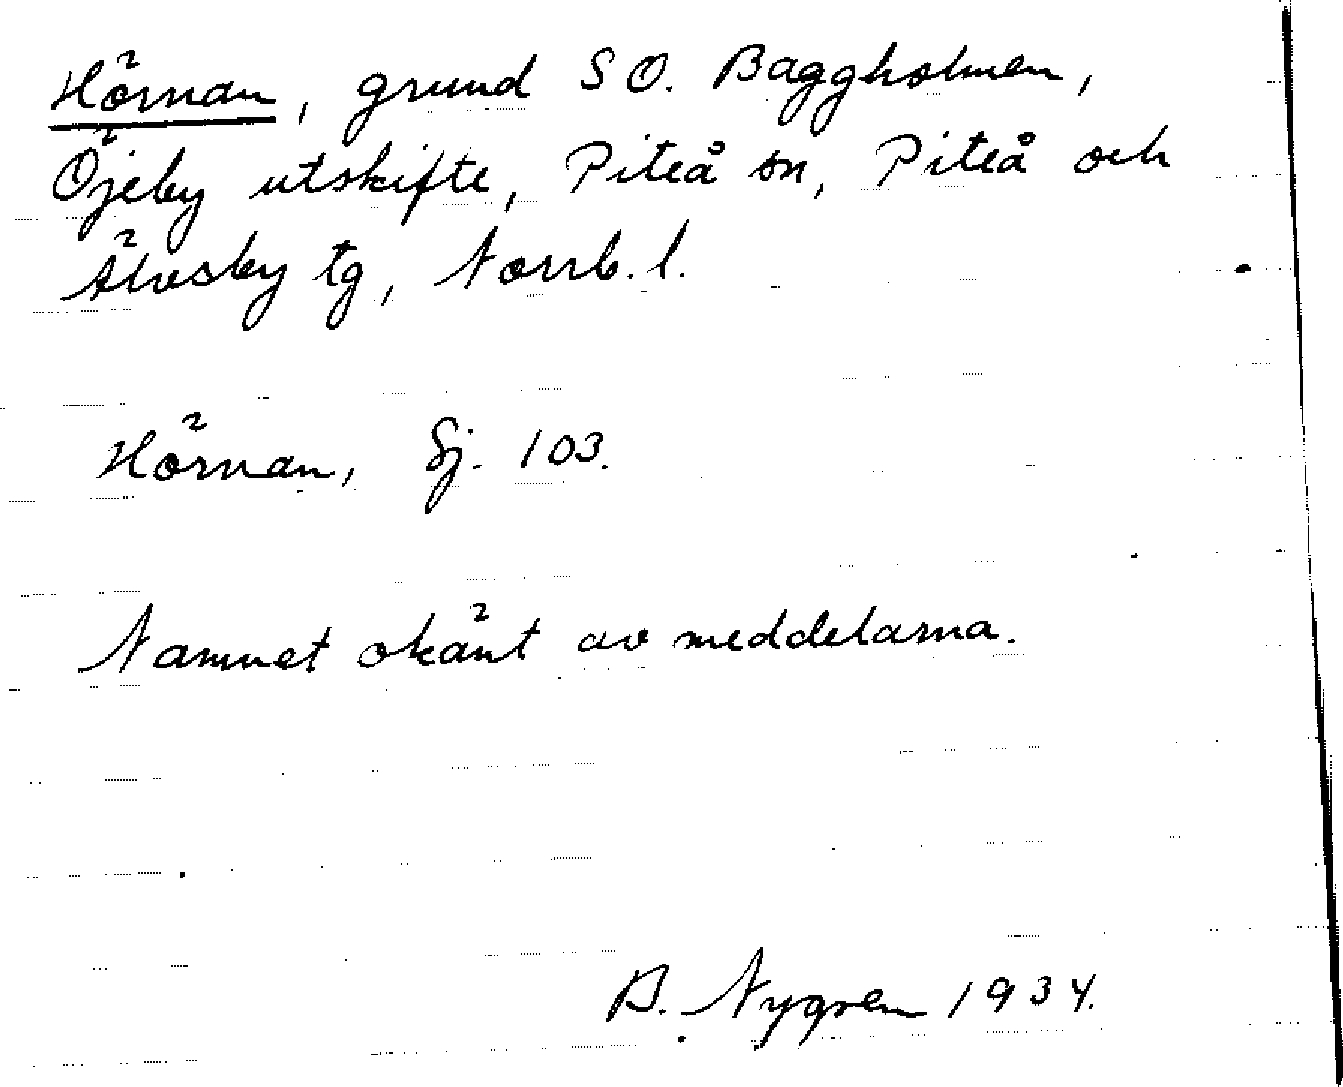 Hörnan, grund SO. Baggholmen,
Öjeby utskifte, Piteå sn, Piteå och
Älvsby tg, Norrb. l.
Hörnan, Sj. 103.
Namnet okänt av meddelarna.
B. Nygren 1934.